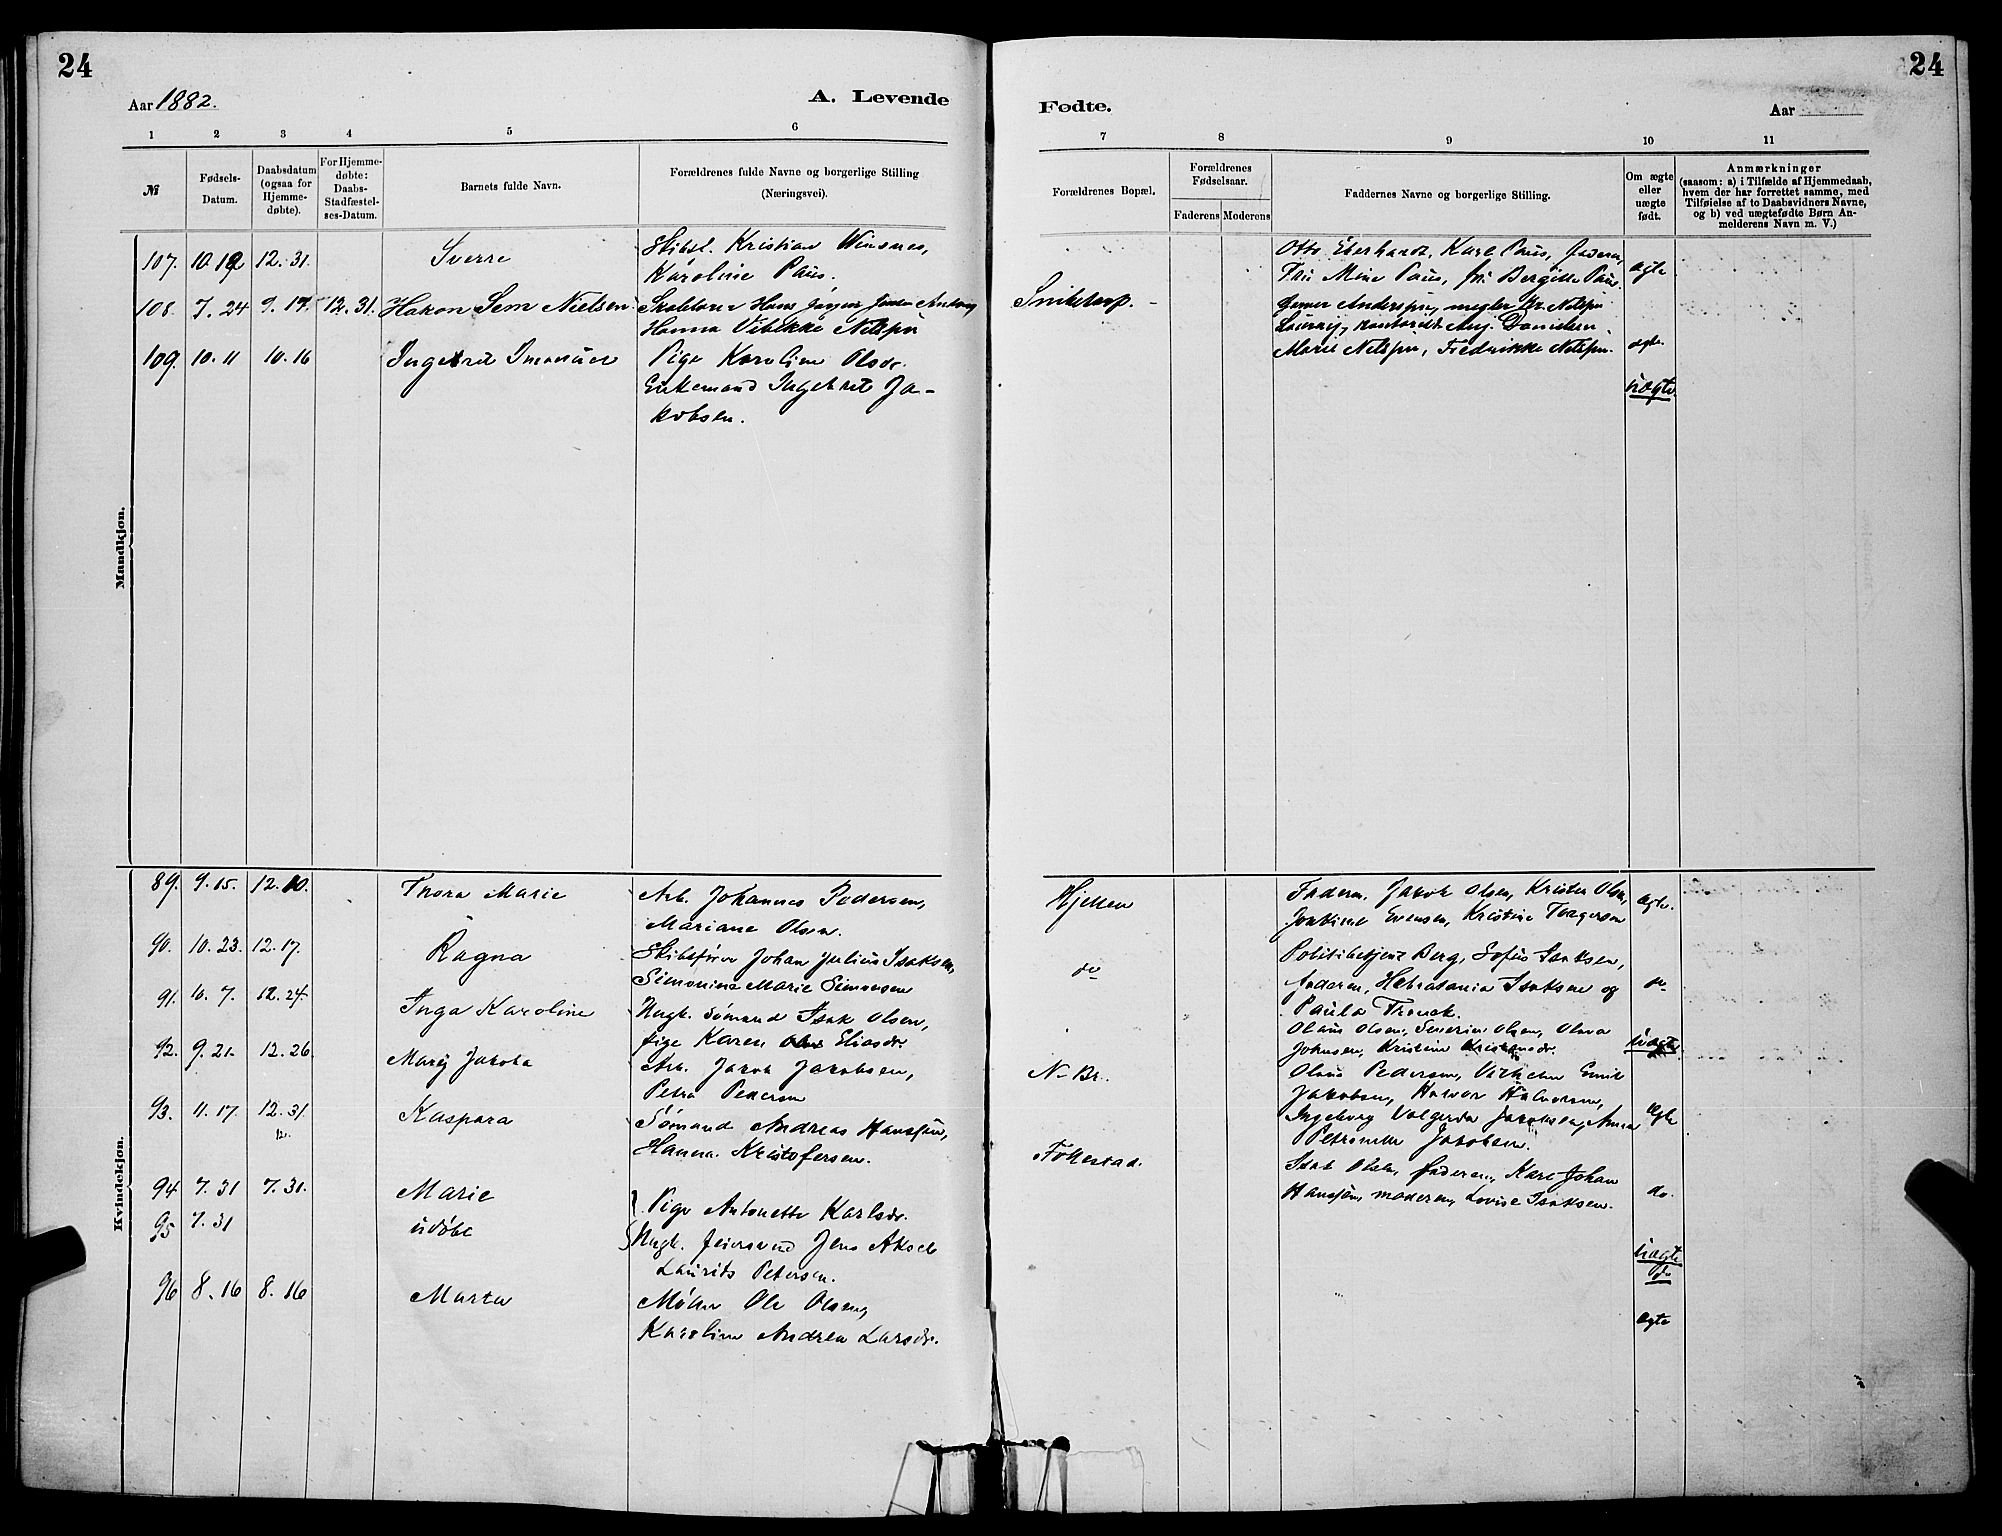 24
Aar 1882.
A. Levende
1 2 3 4 5 6
№
Fødsels-Datum.
Daabsdatum (ogsaa for Hjemmedøbte).
For Hjemmedøbte: Daabs-Stadfæstelses-Datum.
Barnets fulde Navn.
Forældrenes fulde Navne og borgerlige Stilling
(Næringsvei).
Mandkjøn.
107. 10.12 12.31. Sverre Skibsf. Kristian Winsnes,
Karoline Paus.
108. 7.24 9.17. 12.31. Hakon Sem Nielsen Hans Jørgen
Hanna Vibekke Nielsen
109. 10.11 10.16 Pige Karoline Olsdr.
Enkemand Ingebret Ja-
kobsen.
Kvindekjøn.
89. 9.15. 12.10. Thora Marie Arb. Johannes Pedersen,
Mariane Olsen.
90. 10.23. 12.17. Ragna Skibsfører Johan Julius Isaksen,
Simonine Marie Simonsen
91. 10.7. 12.24. Inga Karoline Ungk. Sømand Isak Olsen,
Pige Karen Eliasdr.
92. 9.21. 12.26. Marij Jakoba Arb. Jakob Jacobsen,
Petra Pedersen
93. 11.17. 12.31. Kaspara Sømand Andreas Hanssen,
Hanna Kristofersen.
94. 7.31 7.31. Marie Pige Antonette Karlsdr.
95 7.31 udøbt Ungk. Jens Aksel
Laurits Petersen.
96 8.16 8.16 Marta Møller Ole Olsen,
Karoline Andrea Larsdr.
24
Fødte.
Aar
7 8 9 10 11
Forældrenes Bopæl.
Forældrenes Fødselsaar.
Faderens Moderens
Faddernes Navne og borgerlige Stilling.
Om ægte eller uægte født.
Anmærkninger
(saasom: a) i Tilfælde af Hjemmedaab,
hvem der har forrettet samme, med
Tilføielse af to Daabsvidners Navne,
og b) ved uægtefødte Børn An-
melderens Navn m. V.)
Otto Eberhardt, Karl Paus, faderen,
Fru Mine Paus, frk Bergitte Paus. ægte
Snibstorp. Gunner Andersen, megler Nielsen
Danielsen.
Marie Nielsen, Fredrikke Nielsen. ægte
uægte.
Hjellen Faderen, Jakob Olsen, Krister Olsen, ægte.
Joakime Evensen, Kristine Torgersen
do Politibetjent Berg, Sofus Isaksen,
faderen, Isaksen og do
Paula Franck.
Olaus Olsen, Severin Olsen, Olava uægte
Johnsen, Kristine
N. Br. Olaus Pedersen, Vilhelm Emil
Jakobsen, Halvor Halvorsen,
Ingeborg Valgerda Jacobsen, Anna ægte
Petronelle Jakobsen.
Follestad. Isak Olsen, faderen, Karl Johan
Hanssen, moderen, Lovise Isaksen. do.
uægte
do
ægte